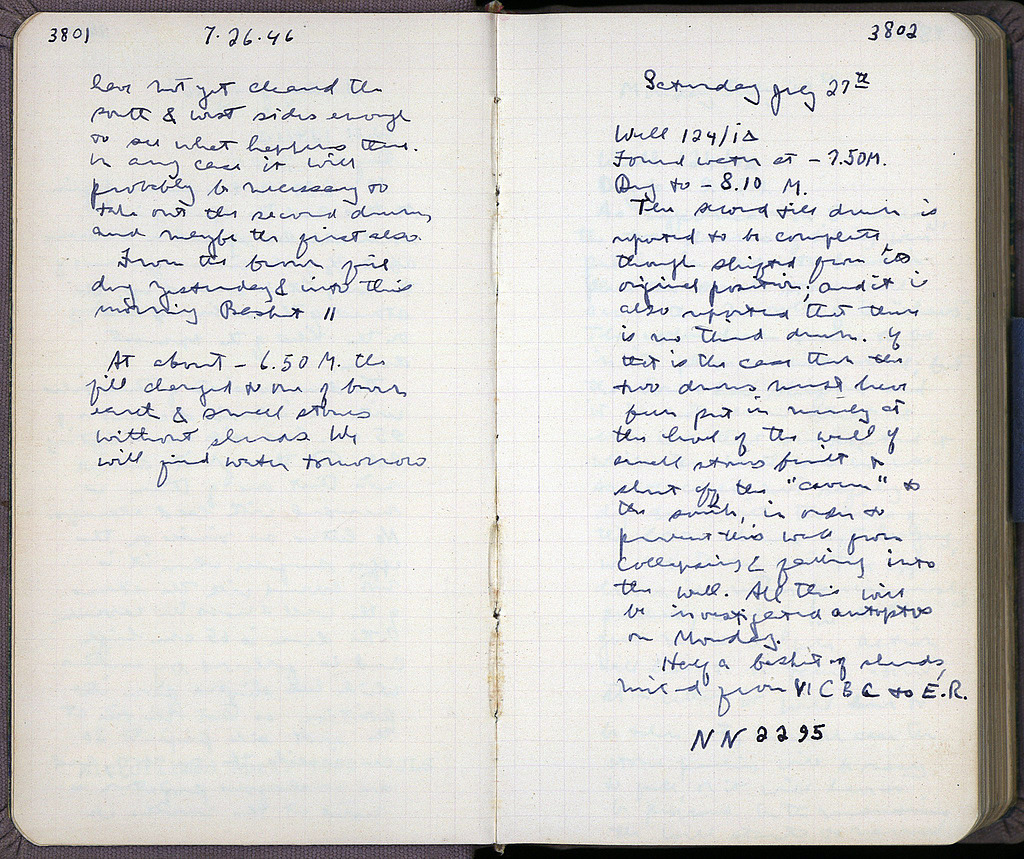 3801
7.26.46
have not yet cleaned the
south & west sides enough
to see what happens there.
In any case it will
probably be necessary to
take out the second drum,
and maybe the first also.
From the brown fill
dug yesterday & into this
morning Basket 11
At about – 6.50 M. the
fill changed to one of brown
earth & small stones
without sherds. We
will find water tomorrow
3802
Saturday July 27th
Well 124/ΙΔ
Found water at – 7.50 M.
Dug to – 8.10 M.
The second tile drum is
reported to be complete,
though shifted from its
original position; and it is
also reported that there
is no third drum. If
that is the case then the
two drums must have
been put in merely at
the level of the wall of
small stones built to
shut off the "cavern" to
the south, in order to
prevent this wall from
collapsing & falling into
the well. All this will
be investigated autoptos
on Monday.
Half a basket of sherds,
mixed from VI C B C to E.R.
NN 2295